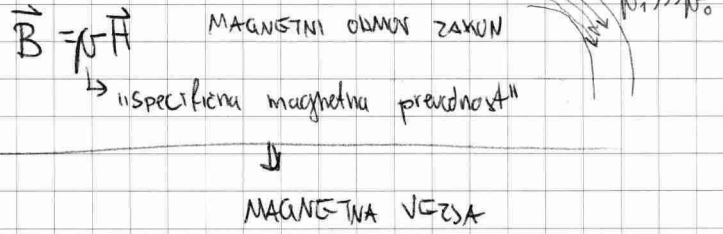 B⃗ = μ·H⃗ MAGNETNI OHMOV ZAKON μ₁ >>> μ₀
↳ "specifična magnetna prevodnost"
⇓
MAGNETNA VEZJA